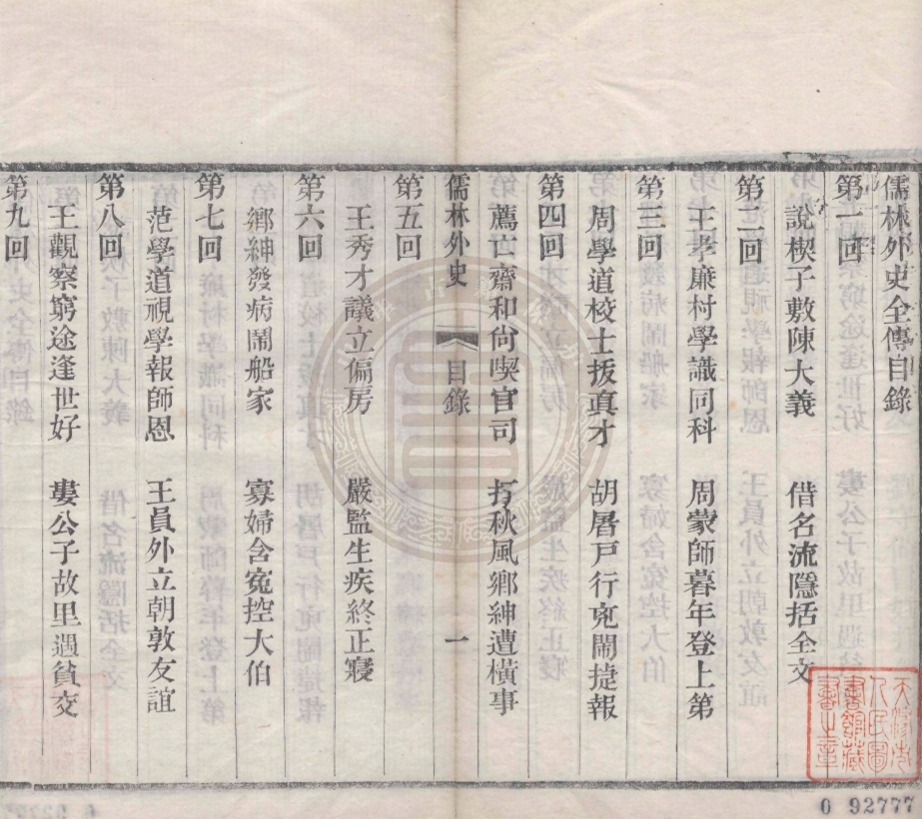 儒林外史全傳目錄
第一回
說楔子敷陳大義　借名流隱括全文
第二回
王孝廉村學識同科　周蒙師暮年登上第
第三回
周學道校士拔眞才　胡屠戸行兇鬧捷報
第四回
薦亡齋和尙喫官司　打秋風鄉紳遭橫事
儒林外史　目錄　一
第五回
王秀才議立偏房　嚴監生疾終正寢
第六回
鄉紳發病鬧船家　寡婦含冤控大伯
第七回
范學道視學報師恩　王員外立朝敦友誼
第八回
王觀察窮途逢世好　婁公子故里遇貧交
第九回
天津市
人民圖
書館藏
書之章
0 92777